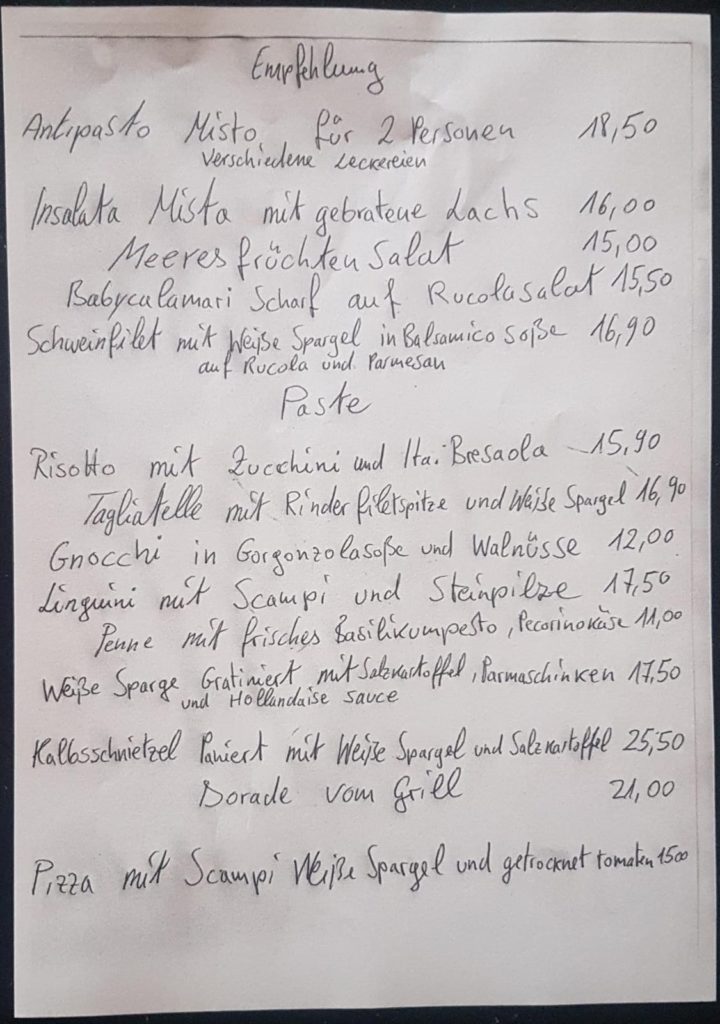 Empfehlung
Antipasto Misto für 2 Personen 18,50
Verschiedene Leckereien
Insalata Mista mit gebratene Lachs 16,00
Meeresfrüchten Salat 15,00
Babycalamari Scharf auf Rucolasalat 15,50
Schweinfilet mit Weiße Spargel in Balsamico Soße 16,90
auf Rucola und Parmesan
Paste
Risotto mit Zucchini und Ita. Bresaola 15,90
Tagliatelle mit Rinderfiletspitze und Weiße Spargel 16,90
Gnocchi in Gorgonzolasoße und Walnüsse 12,00
Linguini mit Scampi und Steinpilze 17,50
Penne mit frisches Basilikumpesto, Pecorinokäse 11,00
Weiße Sparge Gratiniert mit Salzkartoffel, Parmaschinken 17,50
und Hollandaise sauce
Kalbsschnietzel Paniert mit Weiße Spargel und Salzkartoffel 25,50
Dorade vom Grill 21,00
Pizza mit Scampi Weiße Spargel und getrocknet tomaten 1500